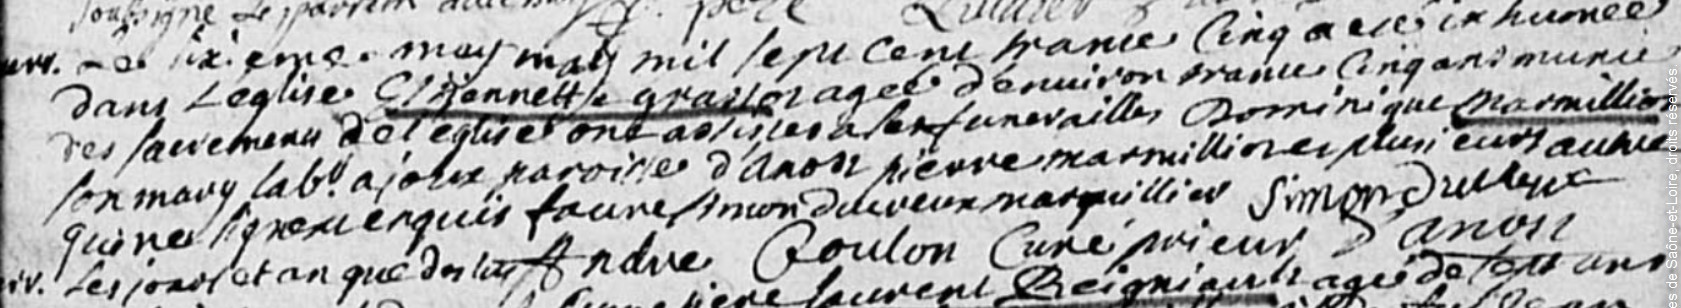 soussigné Le parrain
Le sixieme may may mil sept cent trante Cinq a ete inhumée
dans Leglise Ethiennette agée d'enuiron trante Cinq ans munie
des sacremens de l eglise ont assistes a ses funerailles Dominique marmillion
son mary lab.r a joux paroisse d'anost pierre marmillion et plusieurs autre
qui ne signent enquis faure simon ducreux marguillier Simon Ducreux
André Coulon Curé prieur d'anost
Les jour et an que dessus laurent Reigniault agé de sept ans
es de Saône-et-Loire, droits réservés